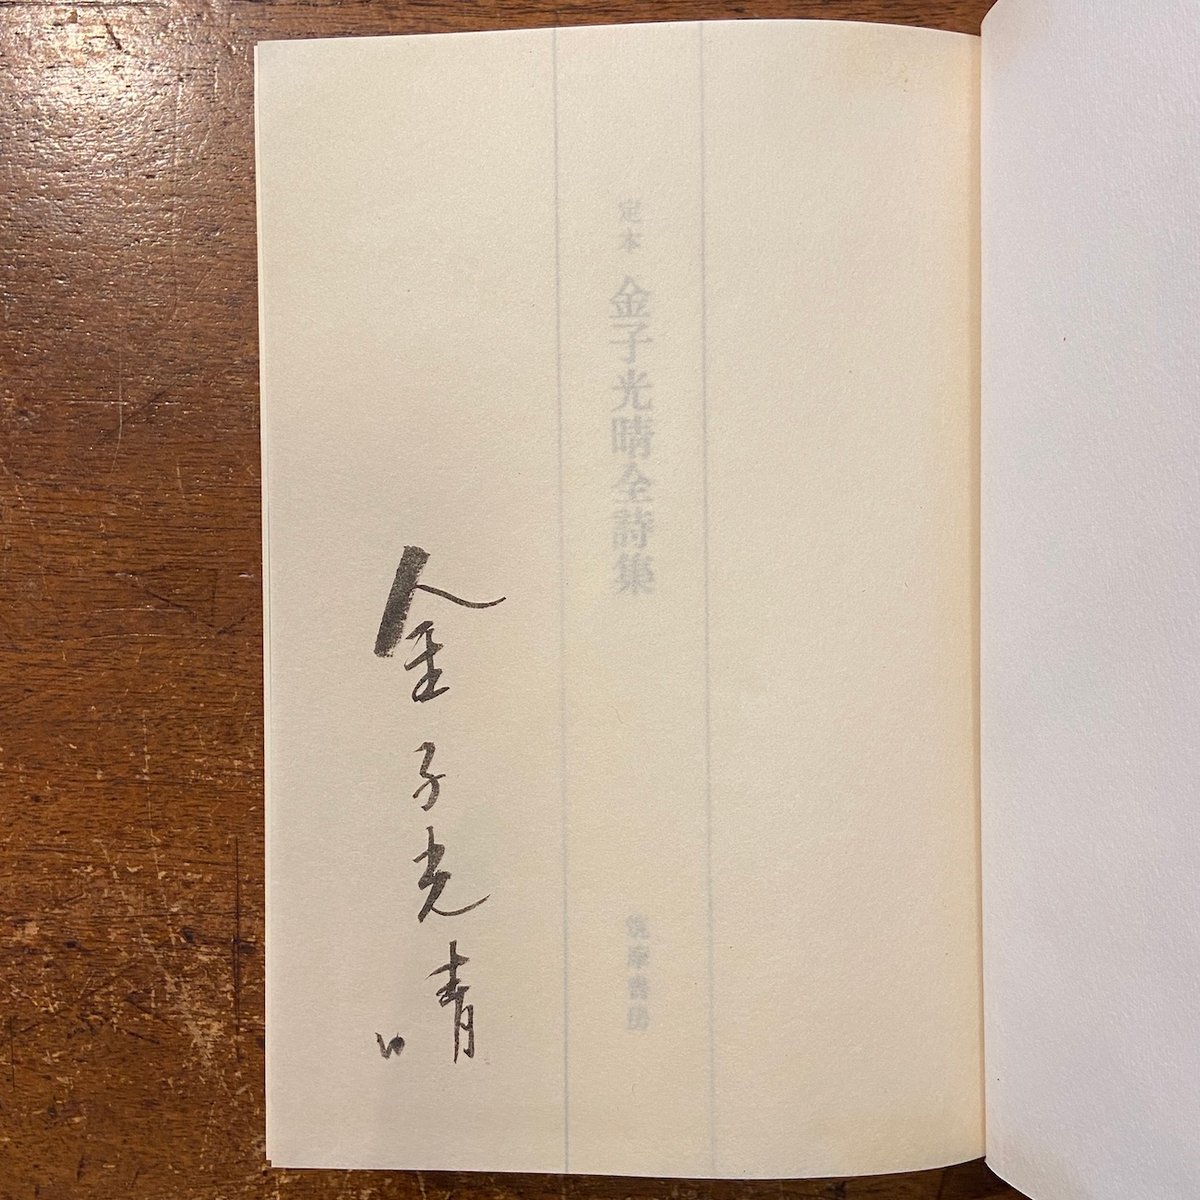 定本 金子光晴全詩集
筑摩書房
金子光晴